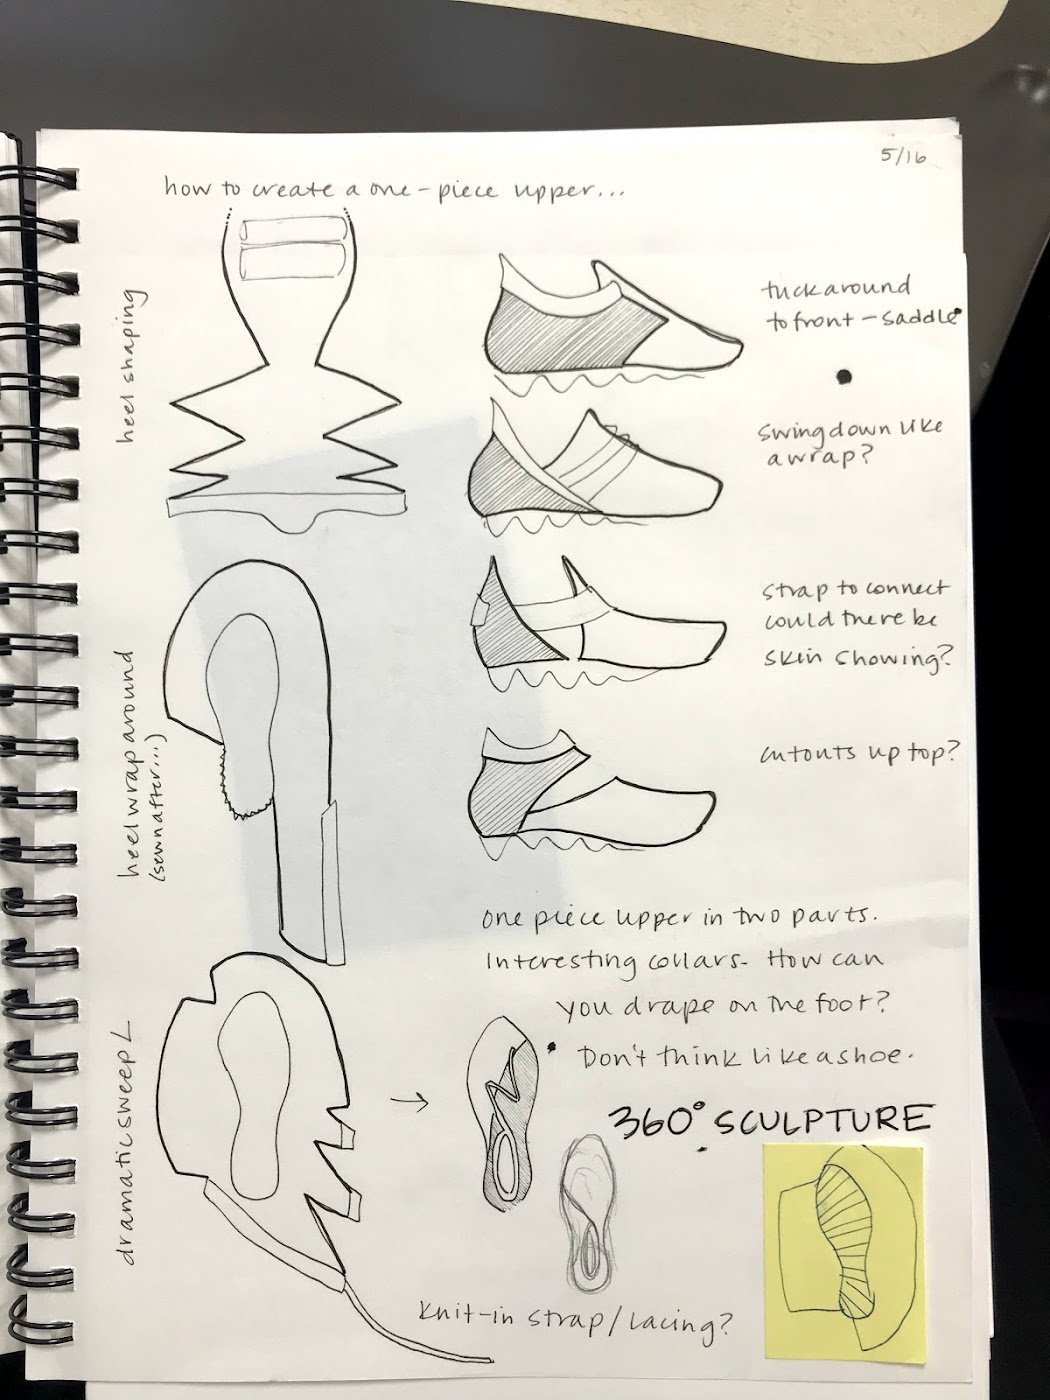 5/16
how to create a one-piece upper...
heel shaping
tuck around
to front - saddle
swing down like
a wrap?
strap to connect
could there be
skin showing?
heel wrap around
(sewn after...)
cutouts up top?
one piece upper in two parts.
Interesting collars. How can
you drape on the foot?
Don't think like a shoe.
360° SCULPTURE
dramatic sweep L
knit-in strap/lacing?